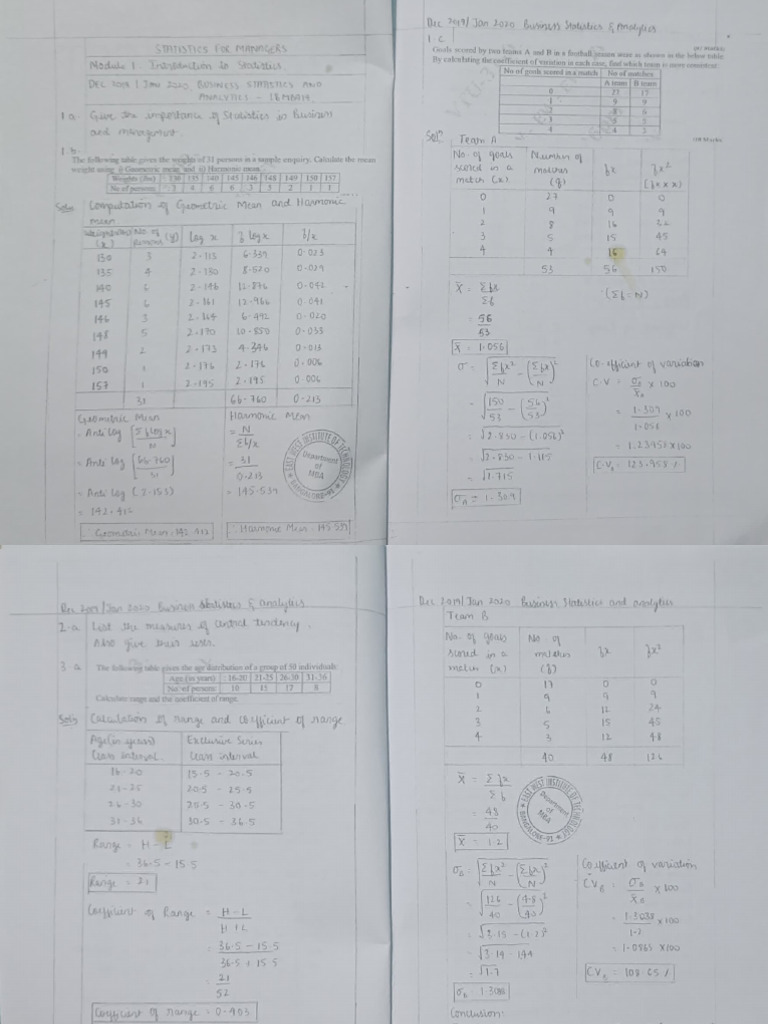 STATISTICS FOR MANAGERS
Module 1. Introduction to Statistics.
DEC 2019 / JAN 2020 BUSINESS STATISTICS AND
ANALYTICS - 18MBA14
1.a Give the importance of Statistics in Business
and management.
1.b.
The following table gives the weights of 31 persons in a sample enquiry. Calculate the mean
weight using i) Geometric mean and ii) Harmonic mean
Weights (lbs) 130 135 140 145 146 148 149 150 157
No of persons 3 4 6 6 3 5 2 1 1
Soln Computation of Geometric Mean and Harmonic
Mean
(x) No. of Persons (f) log x f log x f/x
130 3 2.113 6.339 0.023
135 4 2.130 8.520 0.029
140 6 2.146 12.876 0.042
145 6 2.161 12.966 0.041
146 3 2.164 6.492 0.020
148 5 2.170 10.850 0.033
149 2 2.173 4.346 0.013
150 1 2.176 2.176 0.006
157 1 2.195 2.195 0.006
31 66.760 0.213
Geometric Mean
= Anti log [Σf log x / N]
= Anti log [66.760 / 31]
= Anti log (2.153)
= 142.412
∴ Geometric Mean = 142.412
Harmonic Mean
= N / Σf/x
= 31 / 0.213
= 145.539
∴ Harmonic Mean = 145.539
EAST WEST INSTITUTE OF TECHNOLOGY
Department
of
MBA
BANGALORE-91
Dec 2019/Jan 2020 Business Statistics & Analytics
1.c
Goals scored by two teams A and B in a football season were as shown in the below table.
By calculating the coefficient of variation in each case, find which team is more consistent.
No of goals scored in a match No of matches
A team B team
0 27 17
1 9 9
2 8 6
3 5 5
4 4 3
Soln Team A
No. of goals scored in a match (x) Number of matches (f) fx fx² (fx × x)
0 27 0 0
1 9 9 9
2 8 16 32
3 5 15 45
4 4 16 64
53 56 150
X̄ = Σfx / Σf
(Σf = N)
= 56 / 53
X̄ = 1.056
σ = √Σfx²/N - (Σfx/N)²
= √150/53 - (56/53)²
= √2.830 - (1.056)²
= √2.830 - 1.115
= √1.715
σA = 1.309
Co-efficient of variation
C.V = σA / X̄A × 100
= 1.309 / 1.056 × 100
= 1.23958 × 100
C.VA = 123.958 %
Dec 2019/Jan 2020 Business Statistics & Analytics
2.a List the measures of central tendency.
Also give their uses.
3.a The following table gives the age distribution of a group of 50 individuals
Age (in years) 16-20 21-25 26-30 31-36
No. of persons 10 15 17 8
Calculate range and the coefficient of range.
Soln Calculation of Range and coefficient of range
Age (in years) Class interval Exclusive Series Class interval
16-20 15.5 - 20.5
21-25 20.5 - 25.5
26-30 25.5 - 30.5
31-36 30.5 - 36.5
Range = H - L
= 36.5 - 15.5
Range = 21
Coefficient of Range = H - L / H + L
= 36.5 - 15.5 / 36.5 + 15.5
= 21 / 52
Coefficient of range = 0.403
Dec 2019/Jan 2020 Business Statistics and analytics
Team B
No. of goals scored in a match (x) No of matches (f) fx fx²
0 17 0 0
1 9 9 9
2 6 12 24
3 5 15 45
4 3 12 48
40 48 126
X̄ = Σfx / Σf
= 48 / 40
X̄ = 1.2
EAST WEST INSTITUTE OF TECHNOLOGY
Department
of
MBA
BANGALORE-91
σB = √Σfx²/N - (Σfx/N)²
= √126/40 - (48/40)²
= √3.15 - (1.2)²
= √3.14 - 1.44
= √1.7
σB = 1.3038
Coefficient of variation
C.VB = σB / X̄B × 100
= 1.3038 / 1.2 × 100
= 1.0865 × 100
C.VB = 108.65 %
Conclusion: